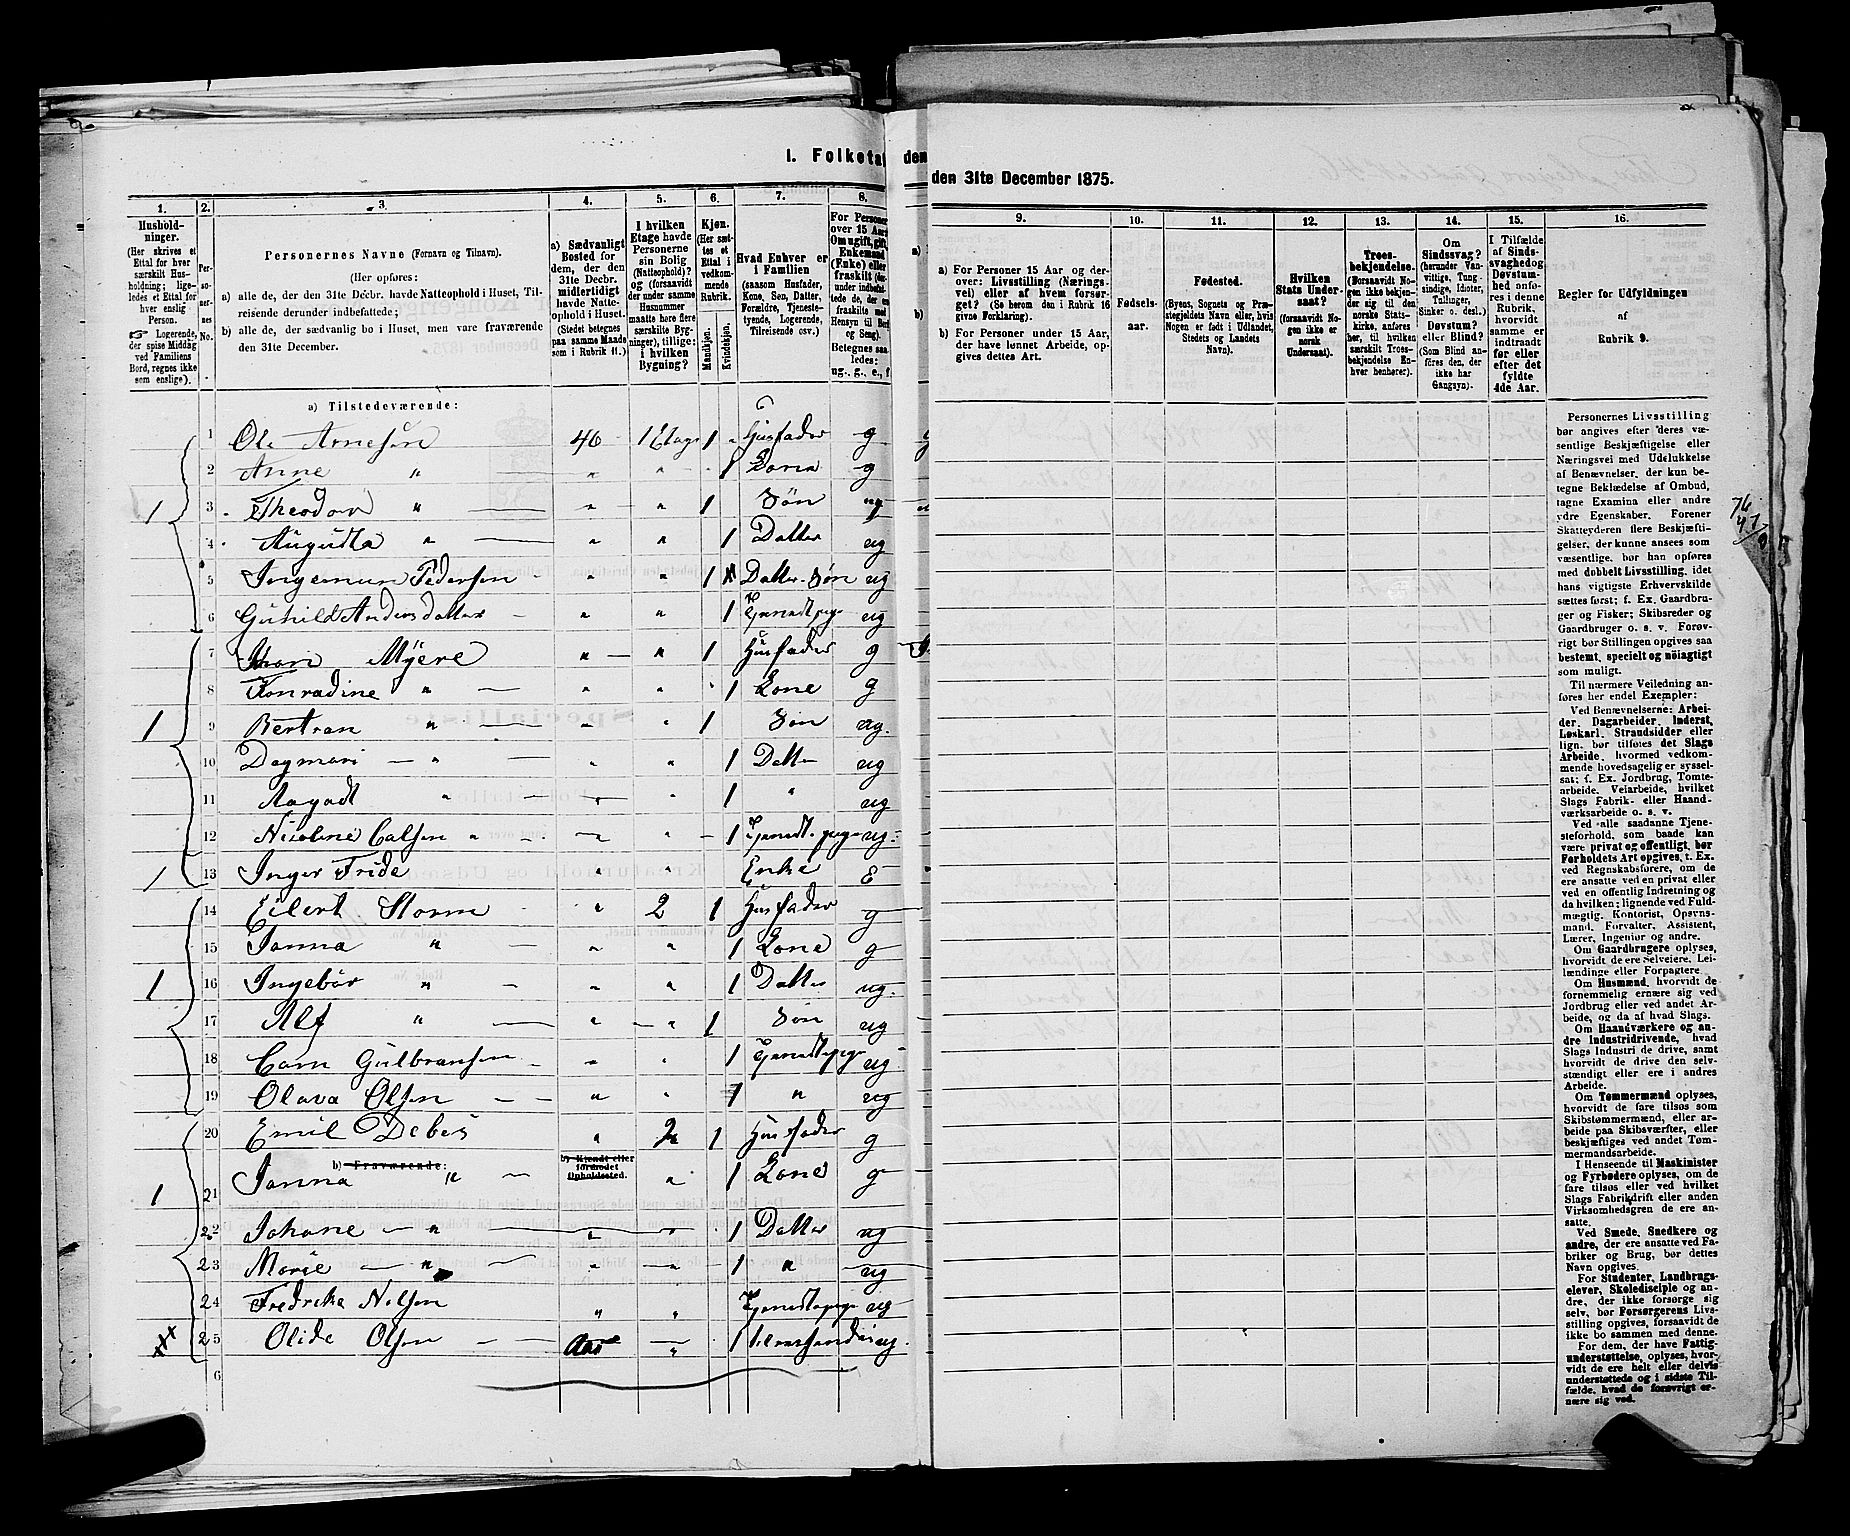 I. Folketæ den
den 31te December 1875.
1. 2. 3. 4. 5. 6. 7. 8.
Husholdninger.
(Her skrives et
Ettal for hver
særskilt Husholdning; ligeledes et Ettal for
hver enslig
Person.
Logerende,
der spise Middag
ved Familiens
Bord, regnes ikke
som enslige).
Personernes No.
Personernes Navne (Fornavn og Tilnavn).
(Her opføres:
a) alle de, der den 31te Decbr. havde Natteophold i Huset, Tilreisende derunder indbefattede;
b) alle de, der sædvanlig bo i Huset, men vare fraværende
den 31te December.
a) Sædvanligt
Bosted for
dem, der den
31te Decbr.
midlertidigt
havde Natteophold i Huset.
(Stedet betegnes
paa samme Maade
som i Rubrik 11.)
I hvilken
Etage havde
Personerne
sin Bolig
(Natteophold)?
og (forsaavidt
der under samme
Husnummer
maatte høre flere
særskilte Bygninger), tillige:
i hvilken
Bygning?
Kjøn.
(Her sættes et
Ettal i
vedkommende
Rubrik.
Mandkjøn.
Kvindekjøn.
Hvad Enhver er
i Familien
(saasom Husfader,
Kone, Søn, Datter,
Forældre, Tjenestetyende, Logerende,
Tilreisende osv.)
For Personer
over 15 Aar:
Om ugift, gift,
Enkemand
(Enke) eller
fraskilt
Betegnes saaledes:
ug., g., e., f
a) Tilstedeværende:
1 Ole Arnesen 46 1 Etage 1 Husfader g
2 Anne " " " 1 Kone g
1 3 Theodor " " " 1 Søn ug
4 Augusta " " " 1 Datter ug
5 Ingemun Pedersen " " 1 Datter Søn ug
6 Guhild Andersdatter " " 1 Tjenestpige ug
7 Myere " " 1 Husfader g
8 Konradine " " " 1 Kone g
1 9 Bertran " " " 1 Søn ug.
10 Dagmari " " " 1 Datter ug
11 Aagodt " " " 1 " ug
12 Nicoline Calsen " " " 1 Tjenestpige ug.
1 13 Inger Fride " " Enke E
14 Eilert Storm " 2 1 Husfader g
15 Janna " " " 1 Kone g
1 16 Ingebör " " " 1 Datter ug.
17 Alf " " " 1 Søn ug
18 Gulbransen " " 1 Tjenestepige ug.
19 Olava Olsen " " 1 " ug
20 Emil Debes " 2 1 Husfader g
b) Fraværende:
b) Kjendt eller
formodet
Opholdssted.
1 21 Janna " " 1 Kone g
22 Johane " " " 1 Datter ug
23 Marie " " " 1 " ug
24 Fredrike Nelsen " " Tjenestepige ug
25 Olide Olsen Aas " 1 ug.
6
9. 10. 11. 12. 13. 14. 15. 16.
a) For Personer 15 Aar og derover: Livsstilling (Næringsvei) eller af hvem forsørget? (Se herom den i Rubrik 16
givne Forklaring).
b) For Personer under 15 Aar,
der have lønnet Arbeide, opgives dettes Art.
Fødselsaar.
Fødested.
(Byens, Sognets og Præstegjeldets Navn eller, hvis
Nogen er født i Udlandet,
Stedets og Landets
Navn).
Hvilken
Stats Undersaat?
(forsaavidt Nogen ikke er
norsk
Undersaat).
Troesbekjendelse.
(Forsaavidt Nogen ikke bekjender sig til
den norske Statskirke, anføres
her, til hvilken
særskilt Trosbekjendelse Enhver henhører).
Om
Sindssvag?
(herunder Vanvittige, Tungsindige, Idioter,
Tullinger,
Sinker o. desl.)
Døvstum?
eller Blind?
(Som Blind anføres den, der
ikke har
Gangsyn).
I Tilfælde
af Sindssvaghed og
Døvstumhed anføres
i denne
Rubrik,
hvorvidt
samme er
indtraadt
før eller
efter det
fyldte
4de Aar.
Regler for Udfyldningen
af
Rubrik 9.
Personernes Livsstilling
bør angives efter deres væsentlige Beskjæftigelse eller
Næringsvei med Udelukkelse
af Benævnelser, der kun betegne Beklædelse af Ombud,
tagne Examina eller andre
ydre Egenskaber. Forener
Skatteyderen flere Beskjæftigelser, der kunne ansees som
væsentlige, bør han opføres
med dobbelt Livsstilling, idet
hans vigtigste Erhvervskilde
sættes først; f. Ex. Gaardbruger og Fisker; Skibsreder og
Gaardbruger o. s. v. Forøvrigt bør Stillingen opgives saa
bestemt, specielt og nøiagtigt
som muligt.
Til nærmere Veiledning anføres her endel Exempler:
Ved Benævnelserne: Arbeider, Dagarbeider, Inderst,
Løskarl, Strandsidder eller
lign. bør tilføies det Slags
Arbeide, hvormed vedkommende hovedsagelig er sysselsat; f. Ex. Jordbrug, Tomtearbeide, Veiarbeide, hvilket
Slags Fabrik- eller Haandværksarbeide o. s. v.
Ved alle saadanne Tjenesteforhold, som baade kan
være privat og offentligt, bør
Forholdets Art opgives, t. Ex.
ved Regnskabsførere, om de
ere ansatte ved en privat eller
ved en offentlig Indretning og
da hvilken; lignende ved Fuldmægtig, Kontorist, Opsynsmand, Forvalter, Assistent,
Lærer, Ingeniør og andre.
Om Gaardbrugere oplyses,
hvorvidt de ere Selveiere, Leilændinge eller Forpagtere.
Om Husmænd, hvorvidt de
fornemmelig ernære sig ved
Jordbrug eller ved andet Arbeide, og da af hvad Slags.
Om Haandværkere og andre Industridrivende, hvad
Slags Industri de drive, samt
hvorvidt de drive den selvstændigt eller ere i andres
Arbeide.
Om Tømmermænd oplyses,
hvorvidt de fare tilsøs som
Skibstømmermænd, eller arbeide paa Skibsværfter, eller
beskjæftiges ved andet Tømmermandsarbeide.
I Henseende til Maskinister
og Fyrbødere oplyses, om de
fare tilsøs eller ved hvilket
Slags Fabrikdrift eller anden
Virksomhedsgren de ere ansatte.
Ved Smede, Snedkere og
andre, der ere ansatte ved Fabriker og Brug, bør dettes
Navn opgives.
For Studenter, Landbrugselever, Skoledisciple og andre, der ikke forsørge sig
selv, bør Forsørgerens Livsstilling opgives, forsaavidt de
ikke bo sammen med denne.
For dem, der have Fattigunderstøttelse, oplyses, hvorvidt de ere helt eller delvis
understøttede og i sidste Tilfælde, hvad de forøvrigt ernære sig ved.